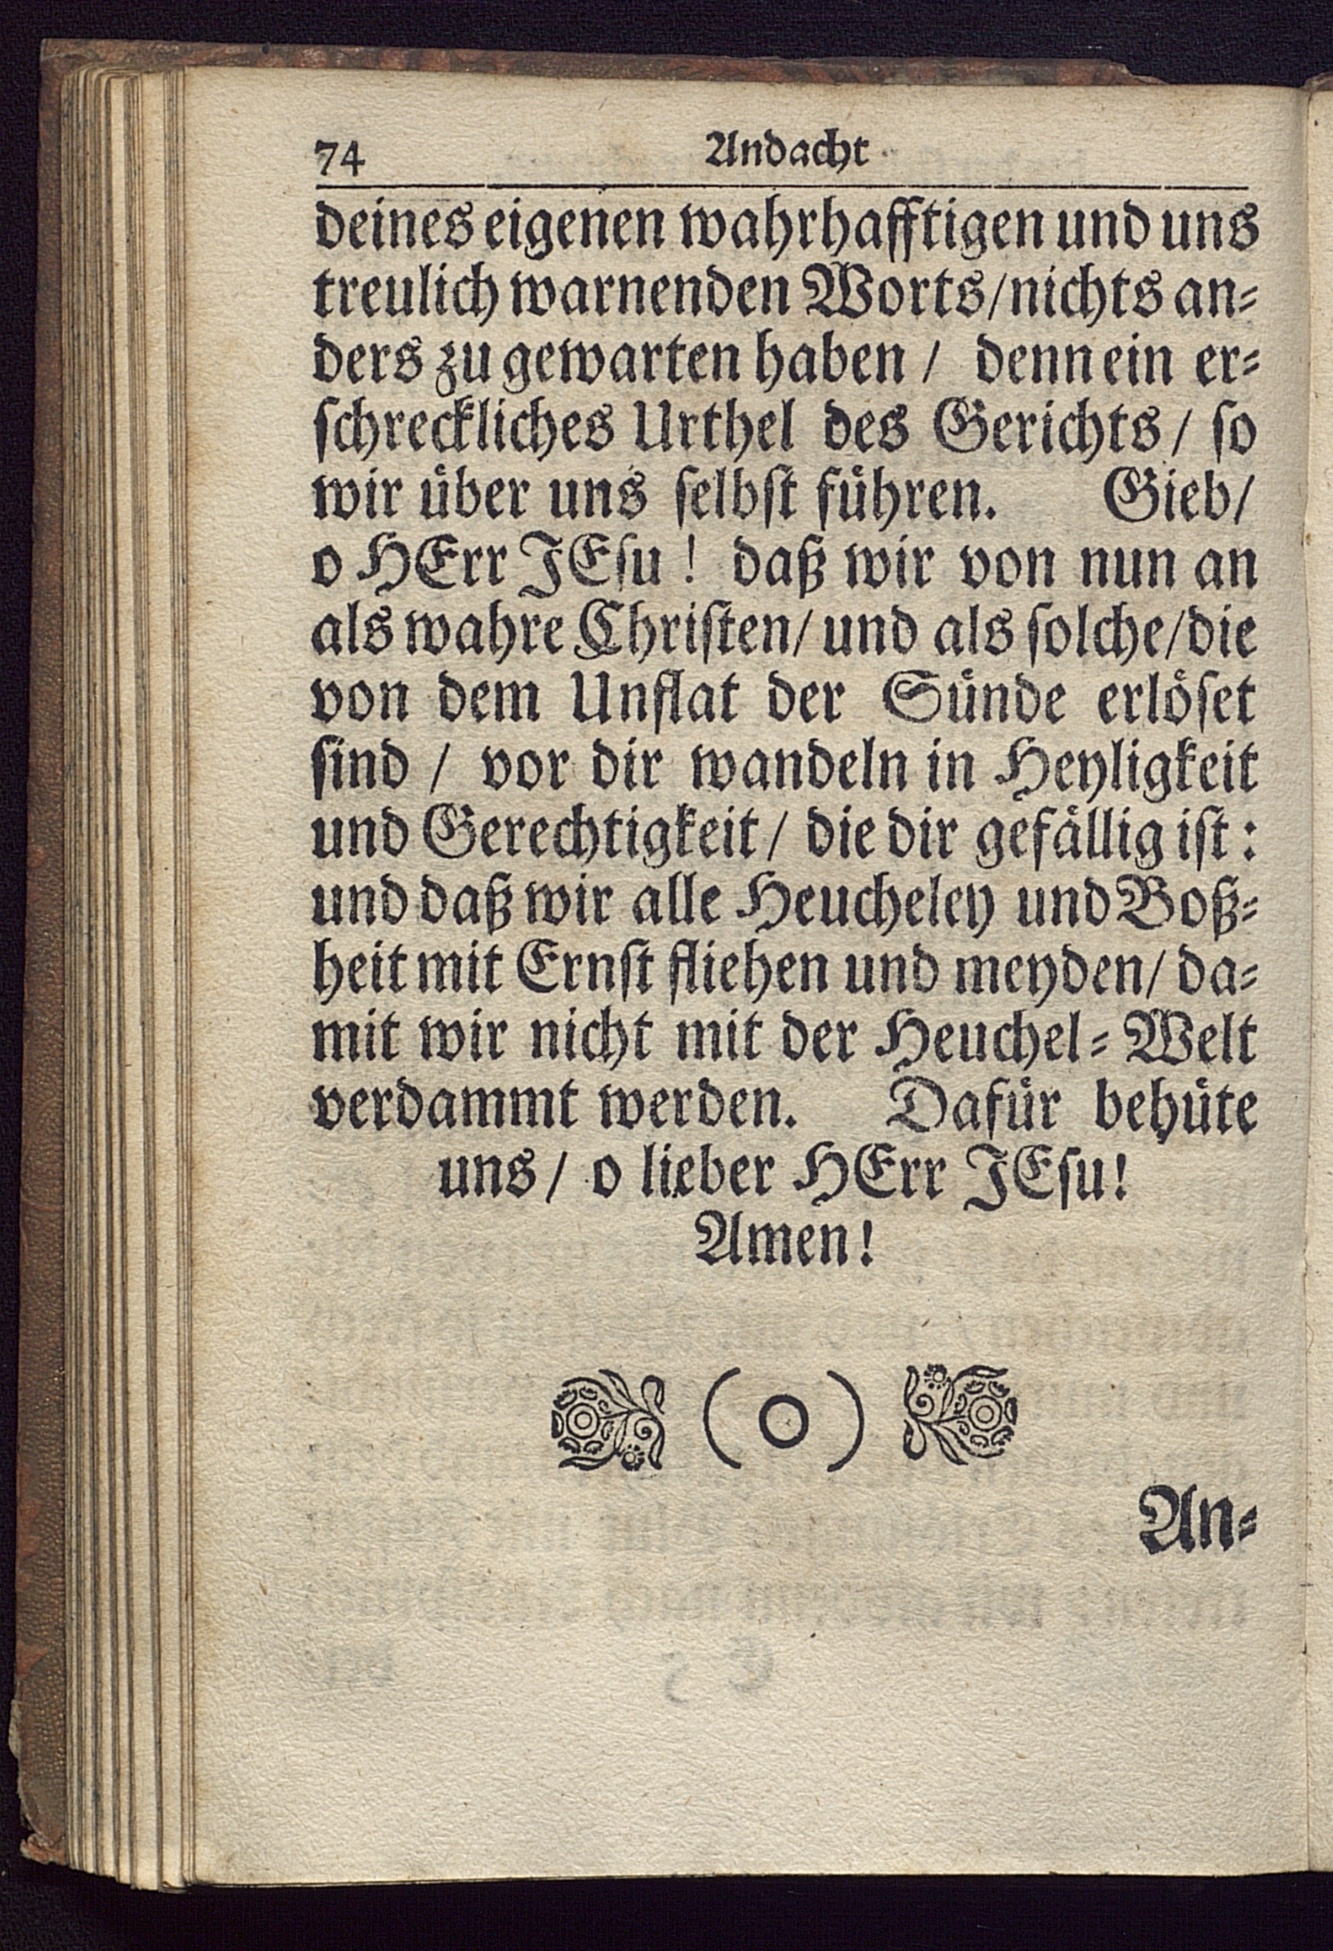 74 Andacht
deines eigenen wahrhafftigen und uns
treulich warnenden Worts/nichts an⸗
ders zu gewarten haben / denn ein er⸗
ſchreckliches Urthel des Gerichts/ ſo
wir uͤber uns ſelbſt fuͤhren. Gieb/
o HErr JEſu! daß wir von nun an
als wahre Chriſten/ und als ſolche/die
von dem Unflat der Suͤnde erloͤſet
ſind / vor dir wandeln in Heyligkeit
und Gerechtigkeit/ die dir gefaͤllig iſt:
und daß wir alle Heucheley und Boß⸗
heit mit Ernſt fliehen und meyden/ da⸗
mit wir nicht mit der Heuchel⸗Welt
verdammt werden. Dafuͤr behuͤte
uns/ o lieber HErr JEſu!
Amen!
(o)
An⸗